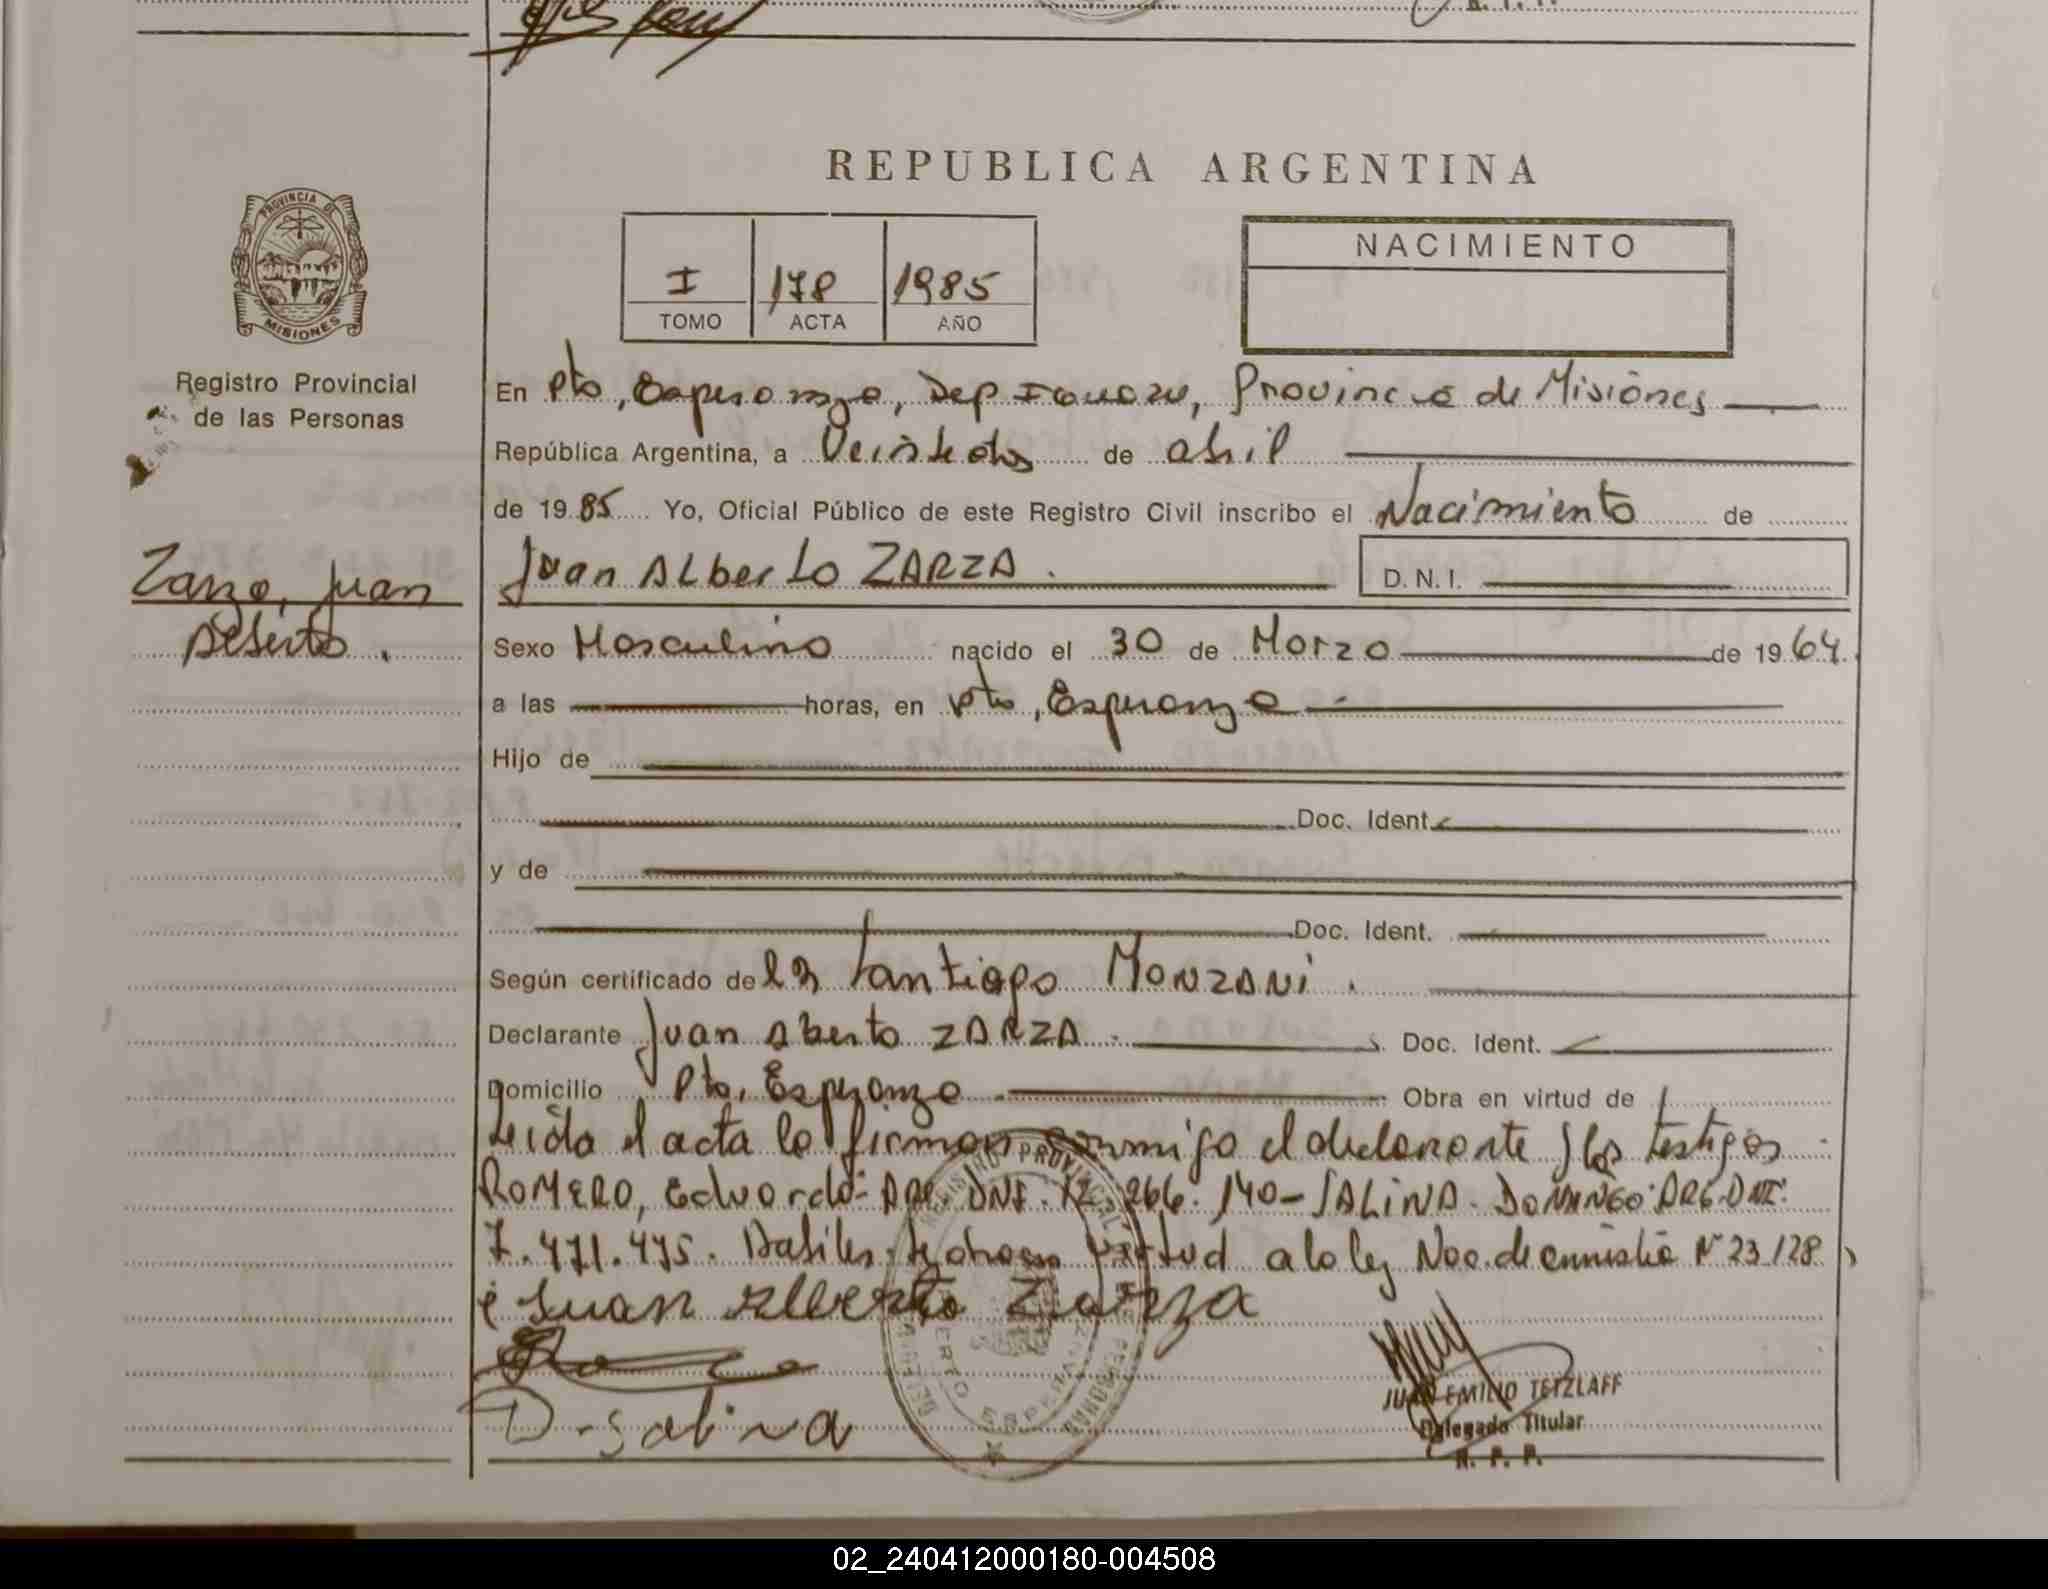 REPUBLICA ARGENTINA
PROVINCIA DE
MISIONES
Registro Provincial
de las Personas
I 178 1985
TOMO ACTA AÑO
NACIMIENTO
En Pto, Esperanza, Dep Iguazu, Provincia de Misiones
República Argentina, a Veintedos de abril
de 1985 Yo, Oficial Público de este Registro Civil inscribo el Nacimiento de
Juan Alberto ZARZA. D. N. I.
Zarza, Juan
Alberto.
Sexo Masculino nacido el 30 de Marzo de 1964.
a las horas, en Pto, Esperanza
Hijo de
Doc. Ident.
y de
Doc. Ident.
Según certificado de Santiago MONZANI.
Declarante Juan Aberto ZARZA. Doc. Ident.
Domicilio Pto, Esperanza. Obra en virtud de
Leida el acta la firman conmigo el declarante y los testigos
ROMERO, Eduardo- ARG DNI. 12.266.140-SALINA. DOMINGO ARG DNI:
7.471.475. Habiles virtud a la ley Nac. de N° 23.128
Juan Alberto Zarza
D-Salina
REGISTRO PROVINCIAL
PERSONAS
JUAN EMILIO TETZLAFF
Delegado Titular
R. P. P.
02_240412000180-004508